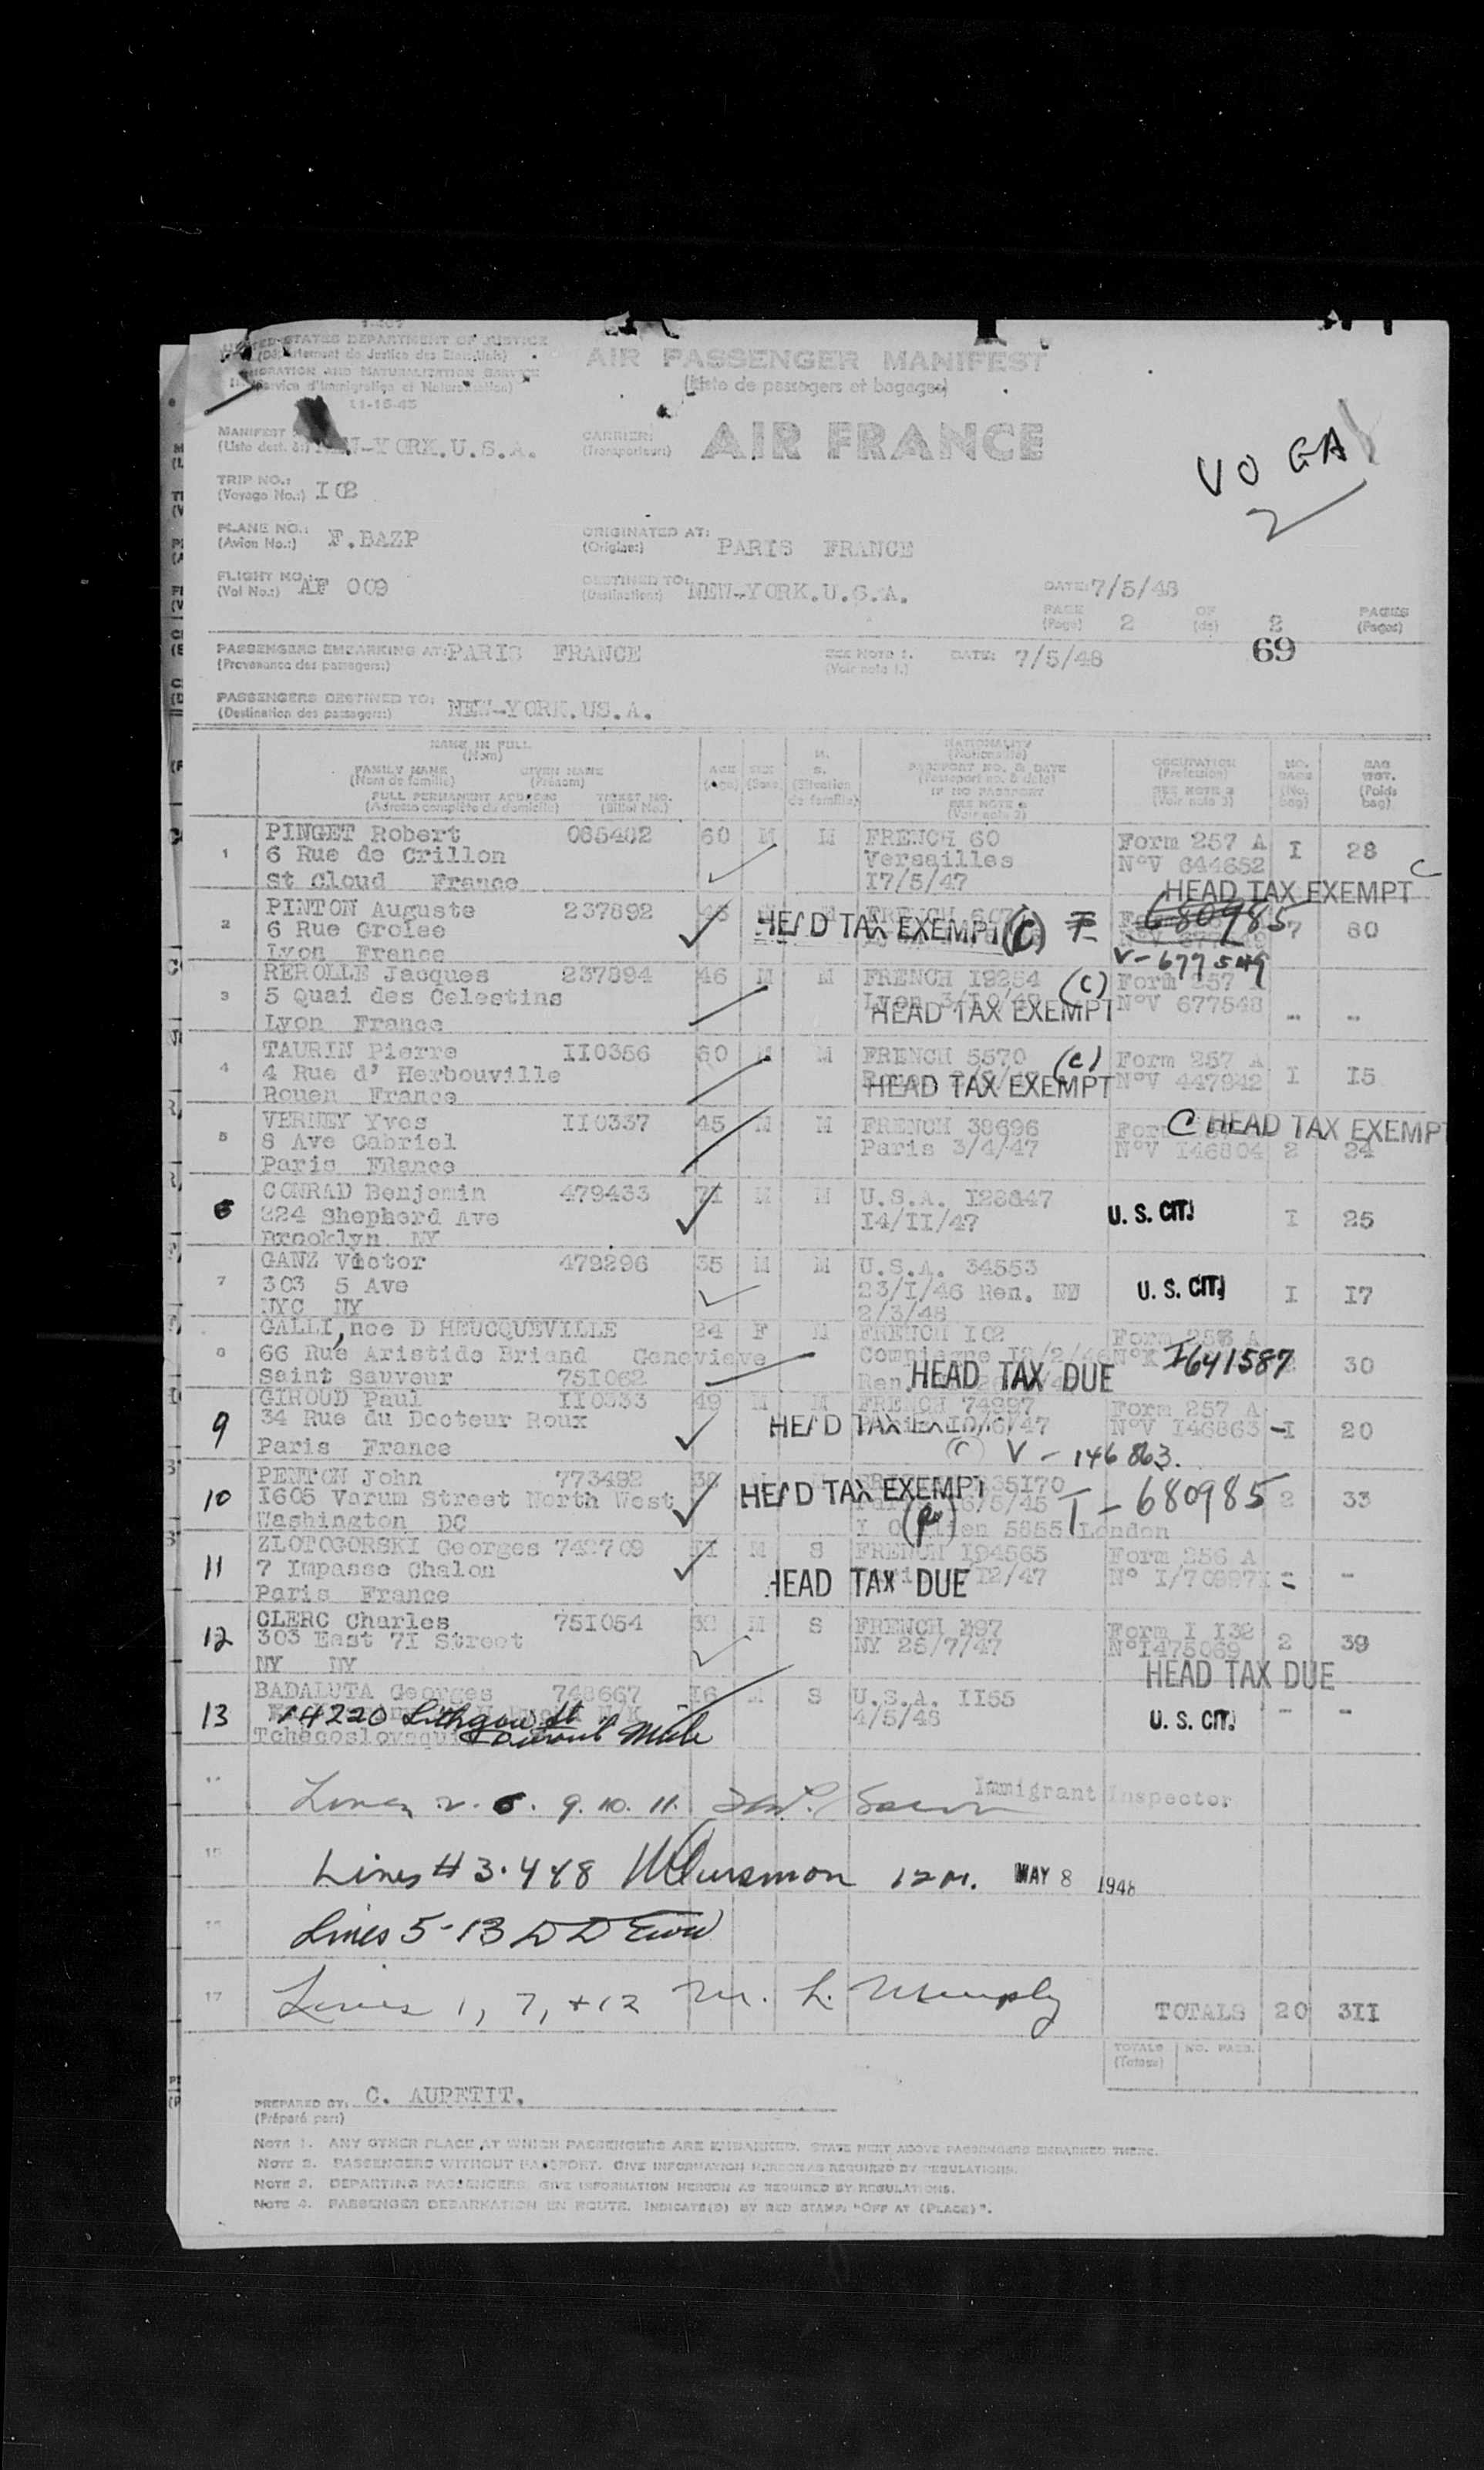 I-467
UNITED STATES DEPARTMENT OF JUSTICE
(Département de Justice des Etats-Unis)
IMMIGRATION AND NATURALIZATION SERVICE
(Service d'Immigration et Naturalisation)
11-15-45
AIR PASSENGER MANIFEST
(Liste de passagers et bagages)
MANIFEST
(Liste dest. à:) NEW-YORK.U.S.A.
CARRIER: AIR FRANCE
(Transporteur:)
VO GA
TRIP NO.: I02
(Voyage No.:)
PLANE NO.: F.BAZP
(Avion No.:)
ORIGINATED AT: PARIS FRANCE
(Origine:)
FLIGHT NO.: AF 009
(Vol No.:)
DESTINED TO: NEW-YORK.U.S.A.
(Destination:)
DATE: 7/5/48
PAGE 2 OF 2 PAGES
(Page) (de) (Pages)
69
PASSENGERS EMBARKING AT: PARIS FRANCE SEE NOTE 1. DATE: 7/5/48
(Provenance des passagers:) (Voir note 1.)
PASSENGERS DESTINED TO: NEW-YORK.US.A.
(Destination des passagers:)
NAME IN FULL
(Nom)
FAMILY NAME GIVEN NAME
(Nom de famille) (Prénom)
FULL PERMANENT ADDRESS TICKET NO.
(Adresse complète du domicile) (Billet No.)
AGE
(Age)
SEX
(Sexe)
M.
S.
(Situation
de famille)
NATIONALITY
(Nationalité)
PASSPORT NO. & DATE
(Passeport no. & date)
IF NO PASSPORT
SEE NOTE 2
(Voir note 2)
OCCUPATION
(Profession)
SEE NOTE 3
(Voir note 3)
NO.
BAGS
(No.
bag)
BAG
WGT.
(Poids
bag)
1 PINGET Robert 085402 60 M M FRENCH 60 Form 257 A I 28
6 Rue de Crillon Versailles N°V 644652
St Cloud France 17/5/47 C
HEAD TAX EXEMPT
2 PINTON Auguste 237892 HEAD TAX EXEMPT (C) 680985 7 60
6 Rue Groise
Lyon France V-677549
3 REROLLE Jacques 237894 46 M M FRENCH I9254 (C) Form 257 A
5 Quai des Celestins HEAD TAX EXEMPT N°V 677548 -- --
Lyon France
4 TAURIN Pierre II0356 60 M M FRENCH 5570 (C) Form 257 A I I5
4 Rue d' Herbouville HEAD TAX EXEMPT N°V 447942
Rouen France
5 VERNEY Yves II0337 45 M M FRENCH 38696 C HEAD TAX EXEMPT
8 Ave Gabriel Paris 3/4/47 N°V I46804 2 24
Paris FRance
6 CONRAD Benjamin 479433 71 M M U.S.A. I28847 U. S. CIT. I 25
224 Shepherd Ave I4/II/47
Brooklyn NY
7 GANZ Victor 479296 35 M M U.S.A. 34553 U. S. CIT. I I7
303 5 Ave 23/I/46 Ren. NY
NYC NY 2/3/48
8 GALLI,nce D HEUCQUEVILLE 24 F M FRENCH I02 Form 256 A
66 Rue Aristide Briand Genevieve Compiegne I641587 30
Saint Sauveur 751062 HEAD TAX DUE
9 GIROUD Paul II0333 49 M M FRENCH 74997 Form 257 A
34 Rue du Docteur Roux HEAD TAX N°V I46863 -I 20
Paris France (C) V - 146863.
10 PENTON John 773492 HEAD TAX EXEMPT T - 680985 2 33
1605 Varum Street North West
Washington DC London
11 ZLOTOGORSKI Georges 742709 11 M S FRENCH I94565 Form 256 A
7 Impasse Chalon HEAD TAX DUE 12/47 -
Paris France
12 CLERC Charles 751054 M S FRENCH 297 Form I I32
303 East 7I Street NY 25/7/47 N°I475069 2 39
NY NY HEAD TAX DUE
13 BADALUTA Georges 748667 I6 M S U.S.A. II55 - -
14220 Lithgow St 4/5/48 U. S. CIT.
Tchecoslovaquie Detroit Mich
14 Lines 2. 6. 9. 10. 11. Immigrant Inspector
15 Lines # 3. 4 & 8 12M. MAY 8 1948
16 Lines 5-13
17 Lines 1, 7, + 12 M. L. Murphy TOTALS 20 3II
TOTALS NO. PASS.
(Totaux)
PREPARED BY: C. AUPETIT.
(Préparé par:)
NOTE 1. ANY OTHER PLACE AT WHICH PASSENGERS ARE EMBARKED. STATE NEXT ABOVE PASSENGERS EMBARKED THERE.
NOTE 2. PASSENGERS WITHOUT PASSPORT. GIVE INFORMATION HEREON AS REQUIRED BY REGULATIONS.
NOTE 3. DEPARTING PASSENGERS. GIVE INFORMATION HEREON AS REQUIRED BY REGULATIONS.
NOTE 4. PASSENGER DEBARKATION EN ROUTE. INDICATE(D) BY RED STAMP "OFF AT (PLACE)".